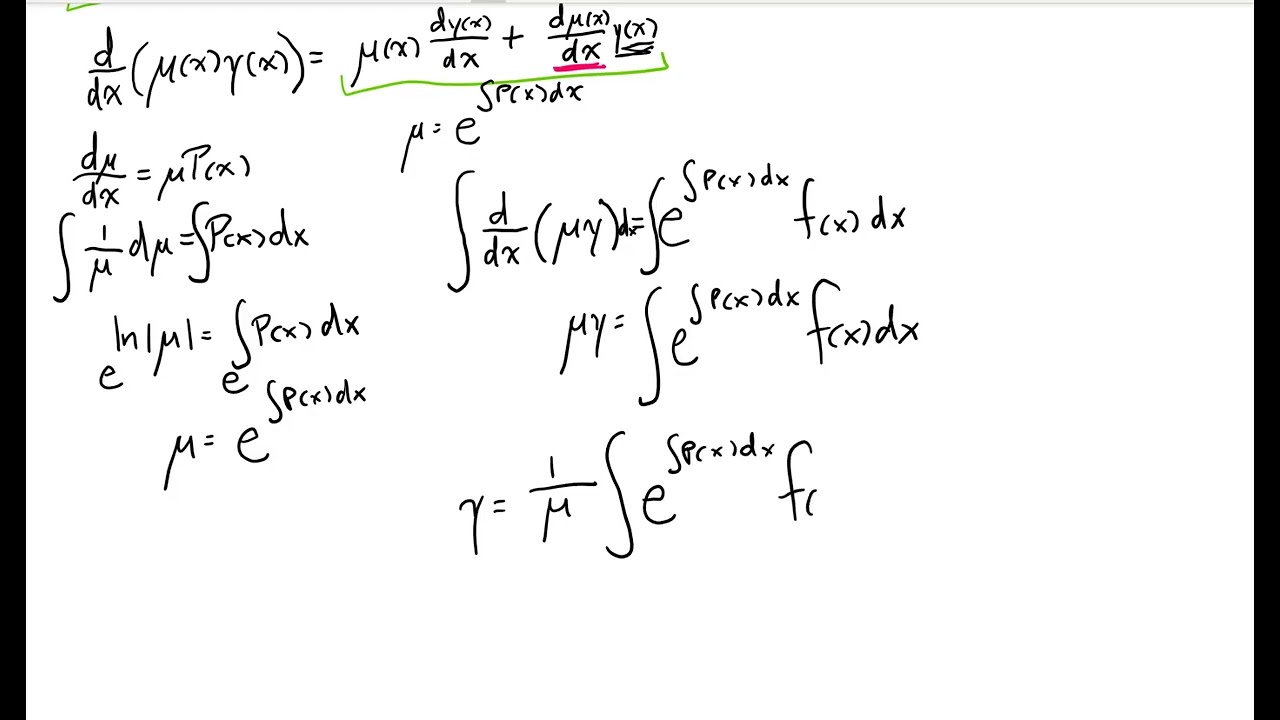 d/dx (μ(x)y(x)) = μ(x) dy(x)/dx + dμ(x)/dx y(x)
μ = e^{∫P(x)dx}
dμ/dx = μP(x)
∫ 1/μ dμ = ∫P(x)dx
e^{ln|μ|} = e^{∫P(x)dx}
μ = e^{∫P(x)dx}
∫ d/dx (μy)dx = ∫e^{∫P(x)dx} f(x)dx
μy = ∫e^{∫P(x)dx} f(x)dx
y = 1/μ ∫e^{∫P(x)dx} f(